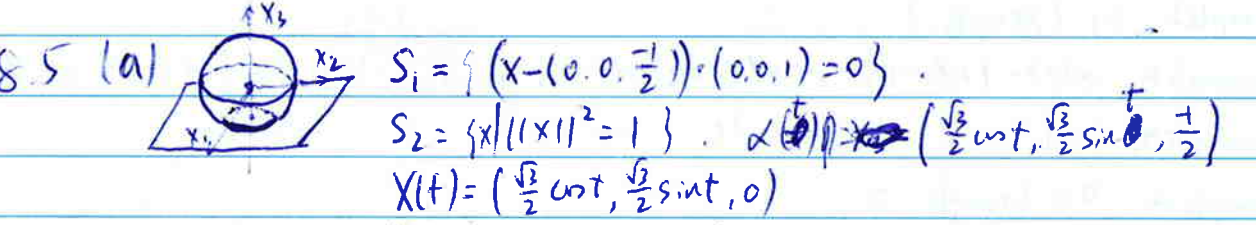 x₃
8.5 (a) x₂ S₁ = { (x-(0.0.-1/2))·(0,0,1)=0} .
x₁ S₂ = {x| ||x||² = 1 } . α(t) = (√3/2 cost, √3/2 sin t, -1/2)
X(t) = (√3/2 cost, √3/2 sint, 0)